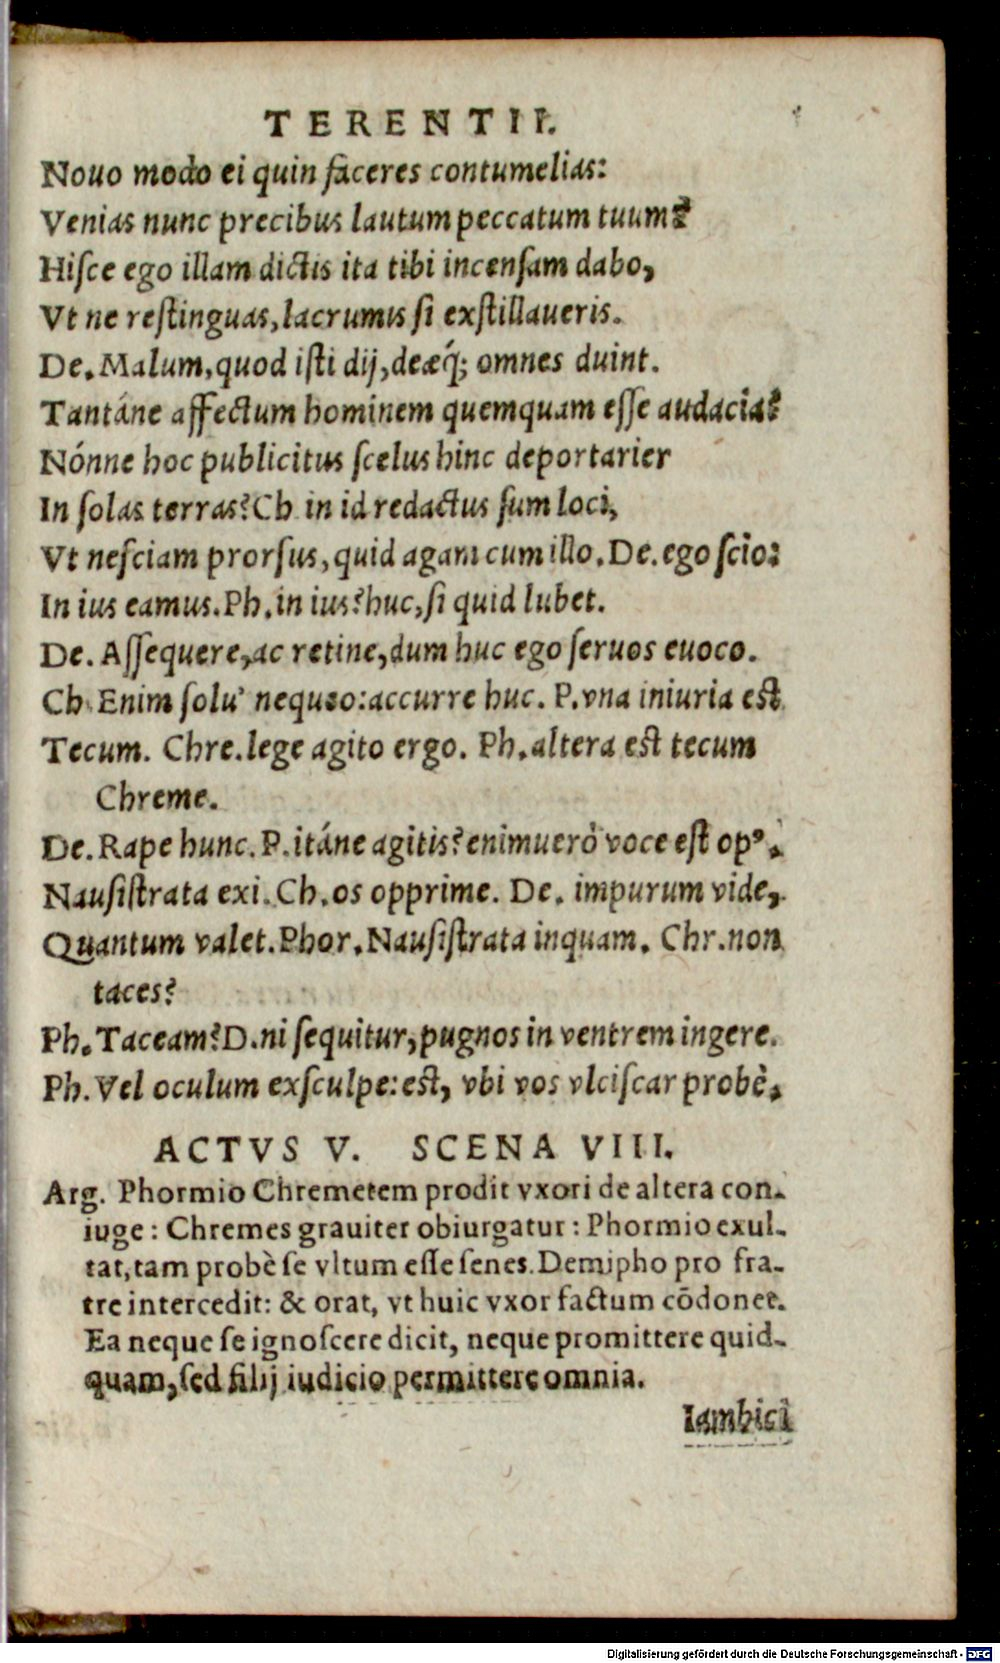 TERENTII.
Nouo modo ei quin faceres contumelias:
Venias nunc precibus lautum peccatum tuum?
Hisce ego illam dictis ita tibi incensam dabo,
Vt ne restinguas, lacrumis si exstillaueris.
De. Malum, quod isti dij, deæq́; omnes duint.
Tantáne affectum hominem quemquam esse audacia?
Nónne hoc publicitus scelus hinc deportarier
In solas terras? Ch in id redactus sum loci,
Vt nesciam prorsus, quid agam cum illo. De. ego scio:
In ius eamus. Ph. in ius? huc, si quid lubet.
De. Assequere, ac retine, dum huc ego seruos euoco.
Ch. Enim solu' nequeo: accurre huc. P. vna iniuria est
Tecum. Chre. lege agito ergo. Ph. altera est tecum
Chreme.
De. Rape hunc. P. itáne agitis? enimuerò voce est opꝰ.
Nausistrata exi. Ch. os opprime. De. impurum vide,
Quantum valet. Phor. Nausistrata inquam. Chr. non
taces?
Ph. Taceam? D. ni sequitur, pugnos in ventrem ingere.
Ph. Vel oculum exsculpe: est, vbi vos vlciscar probè.
ACTVS V. SCENA VIII.
Arg. Phormio Chremetem prodit vxori de altera con-
iuge: Chremes grauiter obiurgatur: Phormio exul-
tat, tam probè se vltum esse senes. Demipho pro fra-
tre intercedit: & orat, vt huic vxor factum cōdonet.
Ea neque se ignoscere dicit, neque promittere quid-
quam, sed filij iudicio permittere omnia.
Iambici
Digitalisierung gefördert durch die Deutsche Forschungsgemeinschaft - DFG